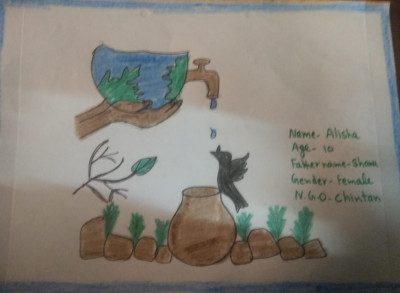 Name- Alisha
Age- 10
Father name- Shona
Gender- Female
N.G.O- Chintan